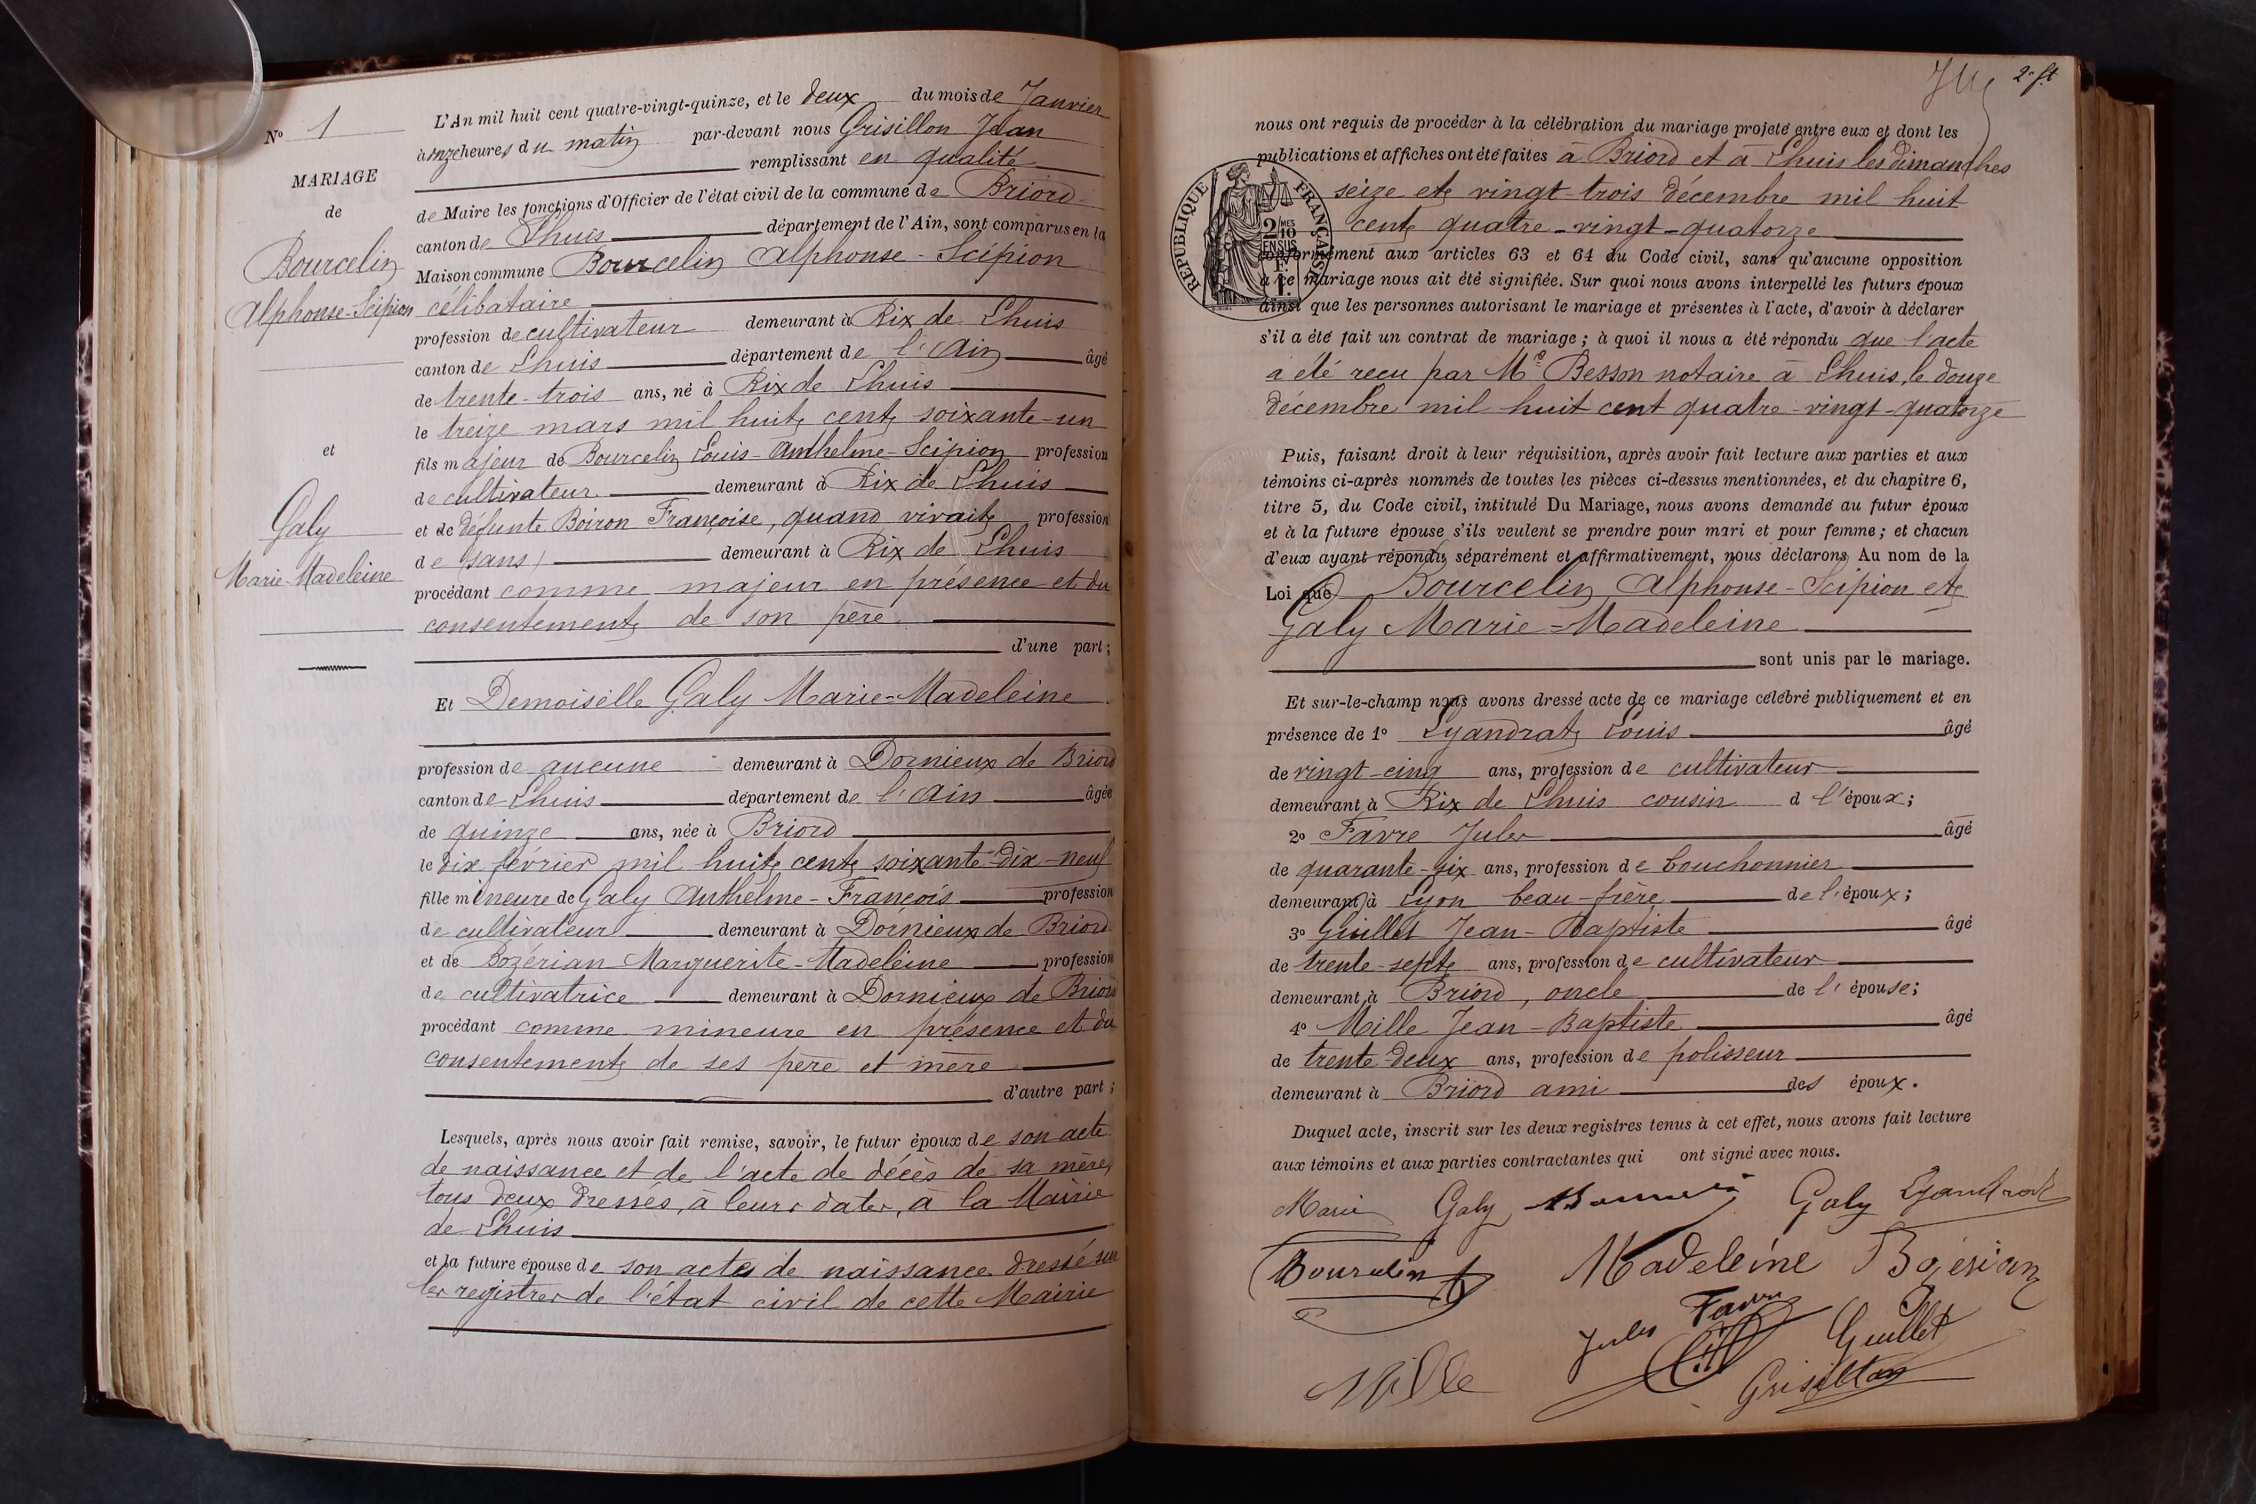 N° 1
MARIAGE
de
Bourcelin
Alphonse-Scipion
et
Galy
Marie-Madeleine
L'An mil huit cent quatre-vingt-quinze, et le deux du mois de Janvier
à onze heures du matin par-devant nous Grisillon Jean
remplissant en qualité
de Maire les fonctions d'Officier de l'état civil de la commune de Briord
canton de Lhuis département de l'Ain, sont comparus en la
Maison commune Bourcelin Alphonse-Scipion
célibataire
profession de cultivateur demeurant à Rix de Lhuis
canton de Lhuis département de l'Ain âgé
de trente-trois ans, né à Rix de Lhuis
le treize mars mil huit cent soixante-un
fils majeur de Bourcelin Louis-Anthelme-Scipion profession
de cultivateur demeurant à Rix de Lhuis
et de défunte Boiron Françoise, quand vivait profession
de (sans) demeurant à Rix de Lhuis
procédant comme majeur en présence et du
consentement de son père
d'une part;
Et Demoiselle Galy Marie=Madeleine
profession de aucune demeurant à Dornieux de Briord
canton de Lhuis département de l'Ain âgée
de quinze ans, née à Briord
le dix février mil huit cent soixante-dix-neuf
fille mineure de Galy Anthelme-François profession
de cultivateur demeurant à Dornieux de Briord
et de Bozérian Marguerite-Madeleine profession
de cultivatrice demeurant à Dornieux de Briord
procédant comme mineure en présence et du
consentement de ses père et mère
d'autre part;
Lesquels, après nous avoir fait remise, savoir, le futur époux de son acte
de naissance et de l'acte de décès de sa mère,
tous deux dressés, à leurs dates, à la Mairie
de Lhuis
et la future épouse de son acte de naissance dressé sur
les registres de l'état civil de cette Mairie
2e ft
nous ont requis de procéder à la célébration du mariage projeté entre eux et dont les
publications et affiches ont été faites à Briord et à Lhuis les dimanches
seize et vingt-trois décembre mil huit
cent quatre-vingt-quatorze
RÉPUBLIQUE FRANÇAISE
2/10 MES
EN SUS
1 F.
conformément aux articles 63 et 64 du Code civil, sans qu'aucune opposition
à ce mariage nous ait été signifiée. Sur quoi nous avons interpellé les futurs époux
ainsi que les personnes autorisant le mariage et présentes à l'acte, d'avoir à déclarer
s'il a été fait un contrat de mariage; à quoi il nous a été répondu que l'acte
a été reçu par Me Besson notaire à Lhuis, le douze
décembre mil huit cent quatre-vingt-quatorze
Puis, faisant droit à leur réquisition, après avoir fait lecture aux parties et aux
témoins ci-après nommés de toutes les pièces ci-dessus mentionnées, et du chapitre 6,
titre 5, du Code civil, intitulé Du Mariage, nous avons demandé au futur époux
et à la future épouse s'ils veulent se prendre pour mari et pour femme; et chacun
d'eux ayant répondu séparément et affirmativement, nous déclarons Au nom de la
Loi que Bourcelin Alphonse-Scipion et
Galy Marie=Madeleine
sont unis par le mariage.
Et sur-le-champ nous avons dressé acte de ce mariage célébré publiquement et en
présence de 1° Lyandrat Louis âgé
de vingt-cinq ans, profession de cultivateur
demeurant à Rix de Lhuis cousin d l'époux;
2° Favre Jules âgé
de quarante-six ans, profession de bouchonnier
demeurant à Lyon beau-frère de l'époux;
3° Guillet Jean-Baptiste âgé
de trente-sept ans, profession de cultivateur
demeurant à Briord, oncle de l'épouse;
4° Mille Jean-Baptiste âgé
de trente-deux ans, profession de polisseur
demeurant à Briord ami des époux.
Duquel acte, inscrit sur les deux registres tenus à cet effet, nous avons fait lecture
aux témoins et aux parties contractantes qui ont signé avec nous.
Marie Galy Galy Lyandrat
Bourcelin Madeleine Bozérian
Jules Favre Guillet
Mille Grisillon